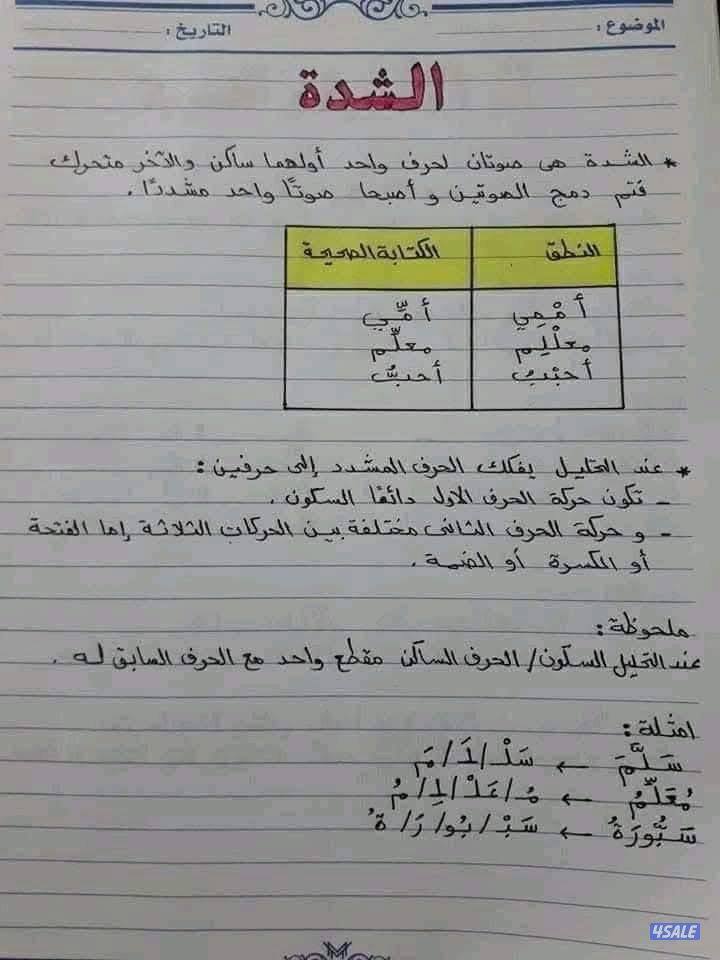 الموضوع : التاريخ :
الشدة
* الشدة هى صوتان لحرف واحد أولهما ساكن والآخر متحرك
فتم دمج الصوتين و أصبحا صوتًا واحد مشددًا .
النطق الكتابة الصحيحة
أُمْمِي أُمِّي
معلْلِم معلِّم
أحبْبُ أحبُّ
* عند التحليل يفكك الحرف المشدد إلى حرفين :
- تكون حركة الحرف الاول دائمًا السكون .
- و حركة الحرف الثانى مختلفة بين الحركات الثلاثة إما الفتحة
أو الكسرة أو الضمة .
ملحوظة :
عند التحليل السكون / الحرف الساكن مقطع واحد مع الحرف السابق له .
امثلة :
سَلَّمَ ← سَلْ / لَ / مَ
مُعَلِّمُ ← مُـ / عَلْ / لِـ / مُ
سَبُّورَةُ ← سَبْ / بُو / رَ / ةُ
4SALE